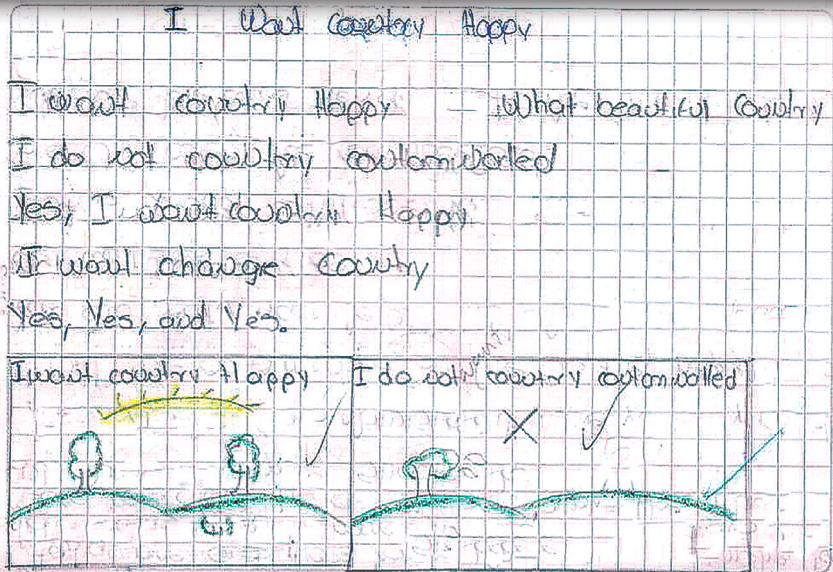 I Want Country Happy
I want country Happy What beautiful Country
I do not country coulomwolled
Yes, I want country Happy
I want change Country
Yes, Yes, and Yes.
I want country Happy
I do not want country coulomwolled